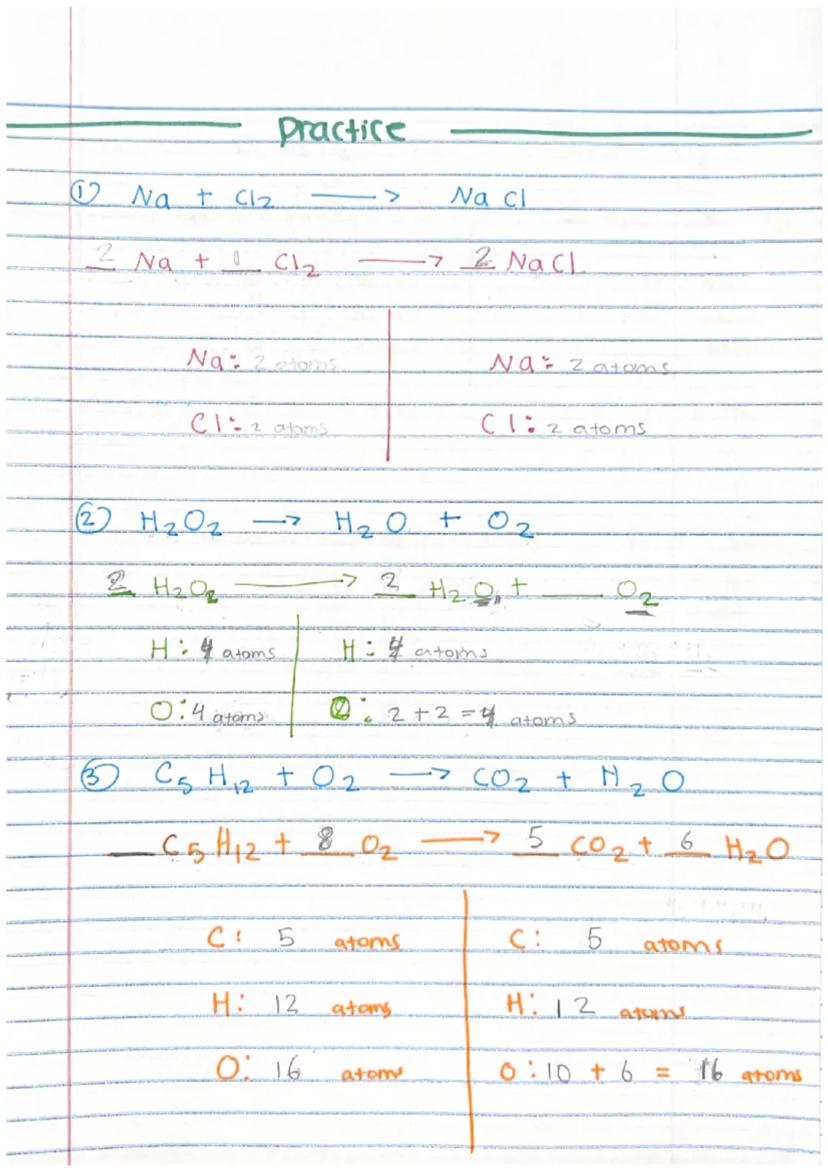 Practice
① Na + Cl2 → NaCl
2 Na + 1 Cl2 → 2 NaCl
Na: 2 atoms Na: 2 atoms
Cl: 2 atoms Cl: 2 atoms
② H2O2 → H2O + O2
2 H2O2 → 2 H2O + __ O2
H: 4 atoms H: 4 atoms
O: 4 atoms O: 2 + 2 = 4 atoms
③ C5H12 + O2 → CO2 + H2O
__ C5H12 + 8 O2 → 5 CO2 + 6 H2O
C: 5 atoms C: 5 atoms
H: 12 atoms H: 12 atoms
O: 16 atoms O: 10 + 6 = 16 atoms